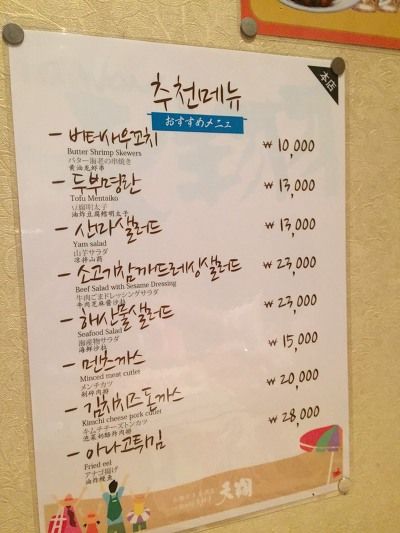 本店
추천메뉴
おすすめメニュー
- 버터새우꼬치 ₩ 10,000
Butter Shrimp Skewers
バター海老の串焼き
黄油龙虾串
- 두부명란 ₩ 13,000
Tofu Mentaiko
豆腐明太子
油炸豆腐鳕明太子
- 산마샐러드 ₩ 13,000
Yam salad
山芋サラダ
凉拌山药
- 소고기참깨드레싱샐러드 ₩ 23,000
Beef Salad with Sesame Dressing
牛肉ごまドレッシングサラダ
牛肉芝麻酱沙拉
- 해산물샐러드 ₩ 23,000
Seafood Salad
海産物サラダ
海鲜沙拉
- 멘츠까스 ₩ 15,000
Minced meat cutlet
メンチカツ
- 김치치즈돈까스 ₩ 20,000
Kimchi cheese pork cutlet
キムチチーズトンカツ
泡菜奶酪炸肉排
- 아나고튀김 ₩ 28,000
Fried eel
アナゴ揚げ
油炸鳗鱼